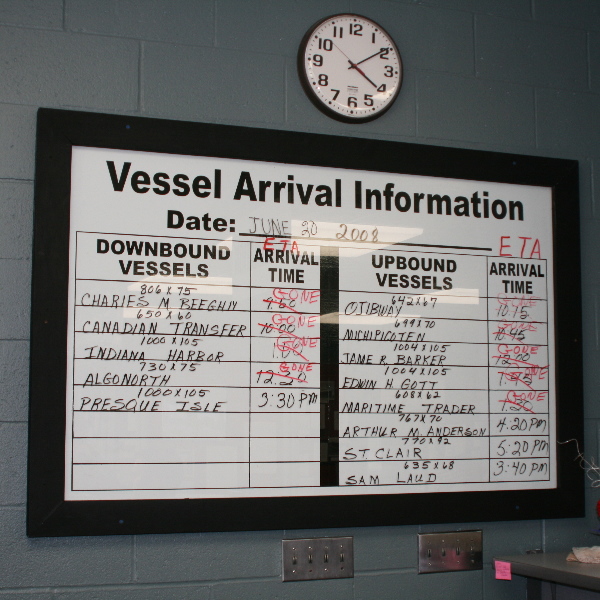 12
1
2
3
4
5
6
7
8
9
10
11
Vessel Arrival Information
Date: JUNE 20 2008
ETA
ETA
DOWNBOUND VESSELS
ARRIVAL TIME
806 X 75 GONE
CHARLES M. BEEGHLY
650 X 60 GONE
CANADIAN TRANSFER 10:00
1000 X 105 GONE
INDIANA HARBOR
730 X 75 GONE
ALGONORTH 12:30
1000 X 105
PRESQUE ISLE 3:30 PM
UPBOUND VESSELS
ARRIVAL TIME
642 X 67 GONE
OJIBWAY 10:15
699 X 70 GONE
MICHIPICOTEN 10:45
1004 X 105 GONE
JAME R. BARKER 12:00
1004 X 105 GONE
EDWIN H. GOTT
608 X 62 GONE
MARITIME TRADER 1:30
767 X 70
ARTHUR M. ANDERSON 4:20 PM
770 X 92
ST. CLAIR 5:20 PM
635 X 68
SAM LAUD 3:40 PM